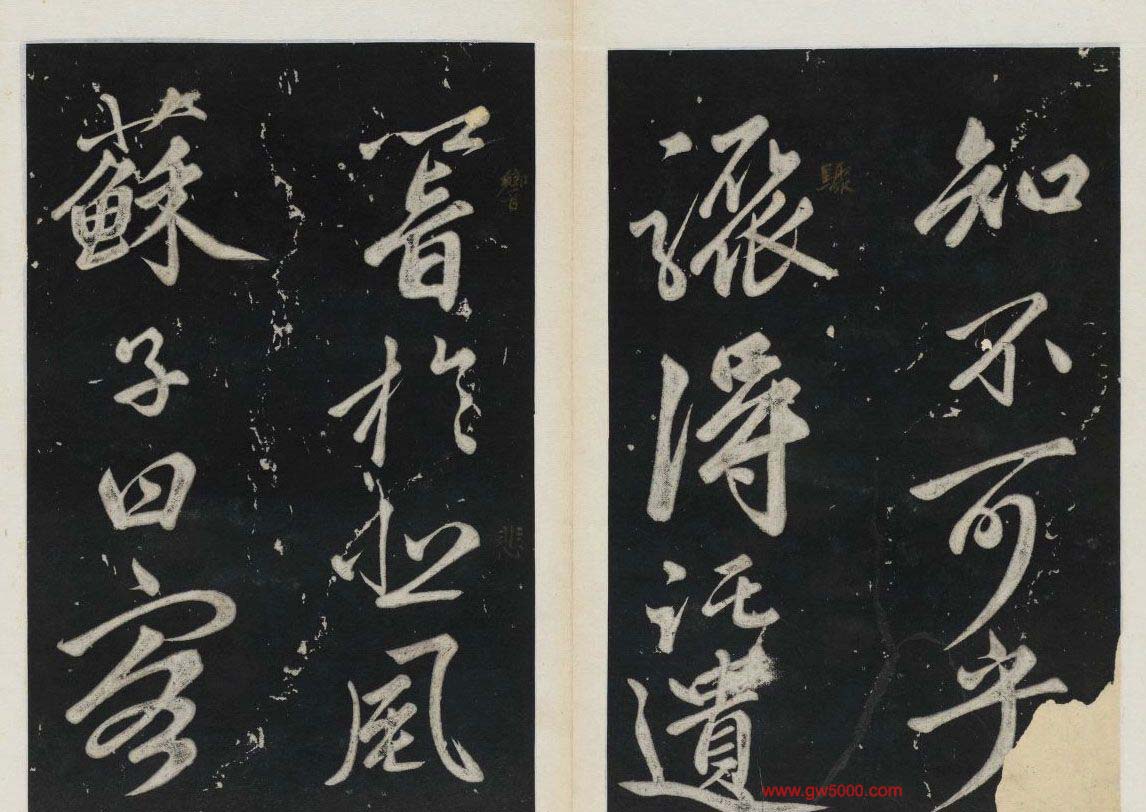 知不可乎
驟得託遺
響於悲風
蘇子曰客
驟
響
悲
www.gw5000.com